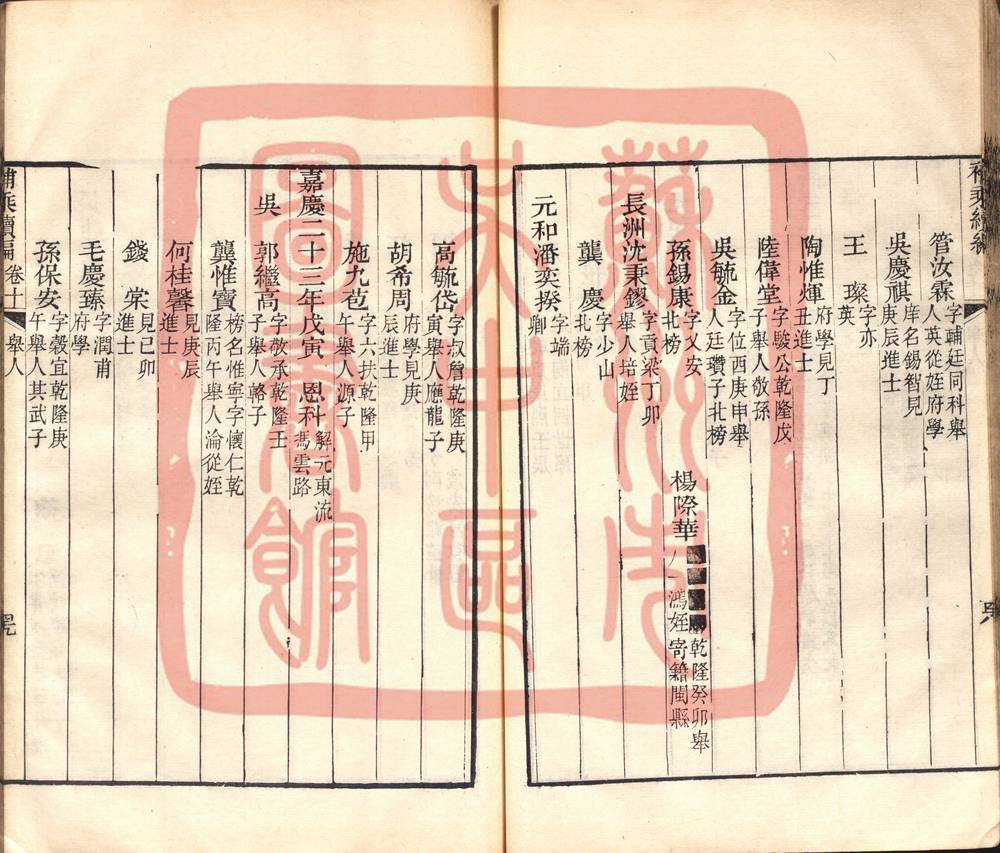 管汝霖 字輔廷同科舉人英從姪府學
吳慶祺 庠名錫智見庚辰進士
王 璨 字亦英
陶惟煇 府學見丁丑進士
陸偉堂 字駿公乾隆戊子舉人敬孫
吳毓金 字位西庚申舉人廷瓚子北榜
孫錫康 字又安北榜
楊際華 乾隆癸卯舉人 鴻姪寄籍閩縣
長洲沈秉鏐 字貢梁丁卯舉人培姪
龔 慶 字少山北榜
元和潘奕揆 字端卿
高毓岱 字叔詹乾隆庚寅舉人應龍子
胡希周 府學見庚辰進士
施九苞 字六扶乾隆甲午舉人源子
嘉慶二十三年戊寅 恩科 解元東流馮雲路
吳 郭繼高 字敬承乾隆壬子舉人輅子
龔惟寶 榜名惟寧字懷仁乾隆丙午舉人淪從姪
何桂馨 見庚辰進士
錢 棠 見己卯進士
毛慶臻 字潤甫府學
孫保安 字穀宜乾隆庚午舉人其武子
續編 卷十 舉人
蘇州市
大中區
圖書館